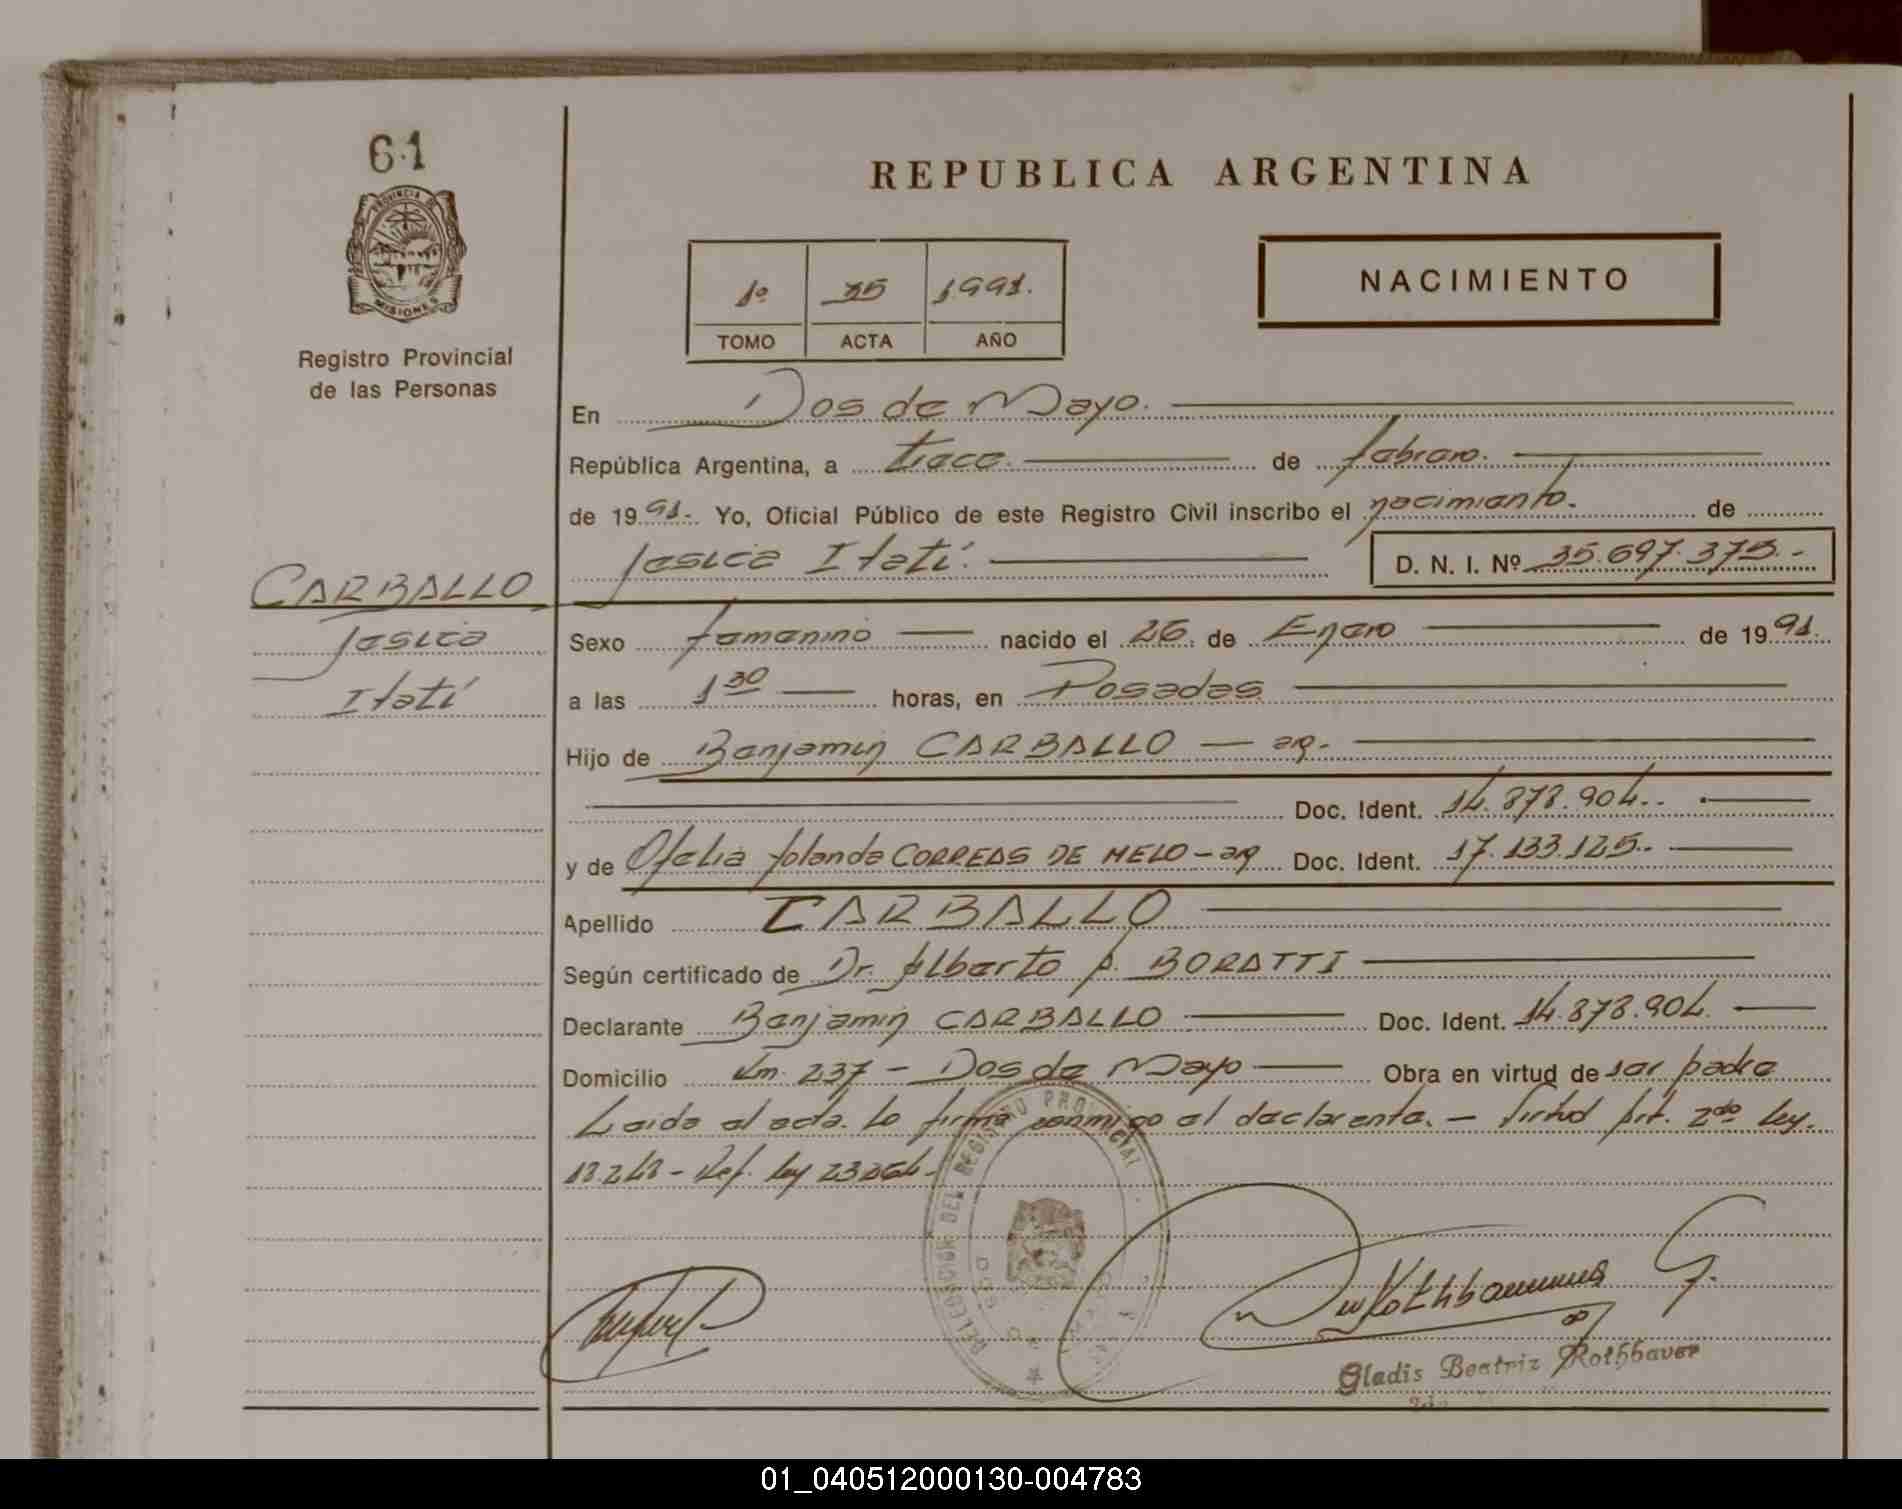 61
PROVINCIA DE
MISIONES
Registro Provincial
de las Personas
REPUBLICA ARGENTINA
1º 1991.
TOMO ACTA AÑO
NACIMIENTO
En Dos de Mayo.
República Argentina, a trece. de febrero.
de 1991.- Yo, Oficial Público de este Registro Civil inscribo el nacimiento. de
Jesica Itatí. D. N. I. Nº 35.697.375.-
CARBALLO
Jesica
Itatí
Sexo femenino nacido el 26. de Enero de 1991.
a las 1 30 horas, en Posadas
Hijo de Benjamin CARBALLO — ar.
Doc. Ident. 14.878.904..
y de Ofelia Yolanda CORREAS DE MELO - ar Doc. Ident. 17.133.125..
Apellido CARBALLO
Según certificado de Dr. Alberto BORATTI
Declarante Benjamin CARBALLO Doc. Ident. 14.878.904.
Domicilio Km. 237 - Dos de Mayo Obra en virtud de ser padre
Leida el acta. La firma conmigo el declarante. - Virtud Art. 2do Ley.
18.248 - Ref. Ley 23264-
DELEGACION DEL REGISTRO PROVINCIAL
Gladis Beatriz Rothbaver
01_040512000130-004783